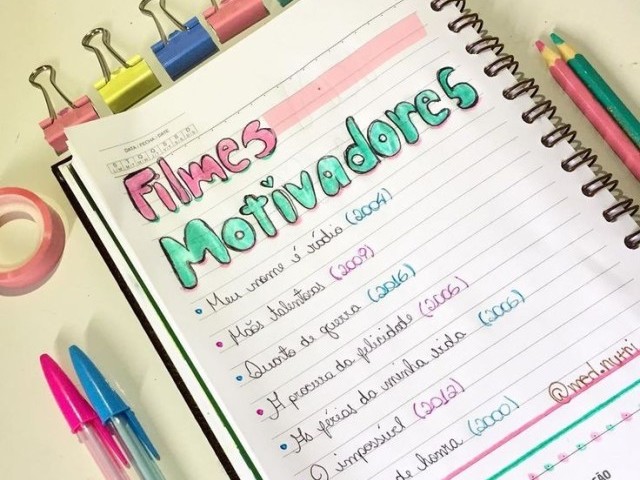 DATA - FECHA - DATE
Filmes
Motivadores
• Meu nome é rádio (2004)
• Mãos talentosas (2009)
• Quarto de guerra (2016)
• A procura da felicidade (2006)
• As férias da minha vida (2006)
O impossível (2012)
de honra (2000)
@med.nutri